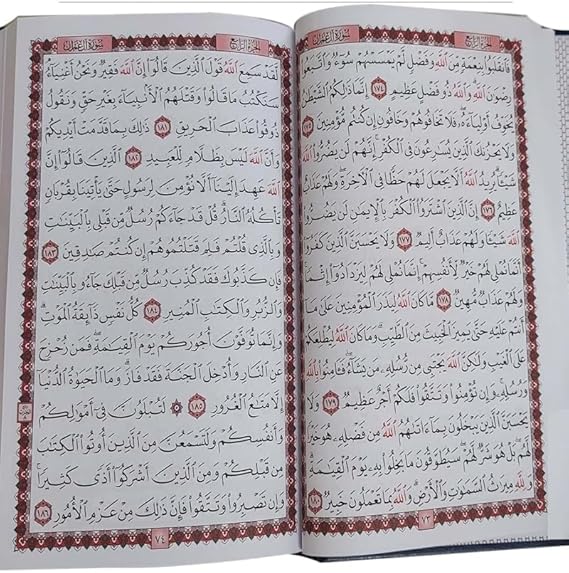 سورة آل عمران
الجزء الرابع
فَانقَلَبُوا۟ بِنِعْمَةٍ مِّنَ ٱللَّهِ وَفَضْلٍ لَّمْ يَمْسَسْهُمْ سُوٓءٌ وَٱتَّبَعُوا۟
رِضْوَٰنَ ٱللَّهِ وَٱللَّهُ ذُو فَضْلٍ عَظِيمٍ ١٧٤ إِنَّمَا ذَٰلِكُمُ ٱلشَّيْطَٰنُ
يُخَوِّفُ أَوْلِيَآءَهُۥ فَلَا تَخَافُوهُمْ وَخَافُونِ إِن كُنتُم مُّؤْمِنِينَ ١٧٥
وَلَا يَحْزُنكَ ٱلَّذِينَ يُسَٰرِعُونَ فِى ٱلْكُفْرِ إِنَّهُمْ لَن يَضُرُّوا۟ ٱللَّهَ
شَيْـًٔا يُرِيدُ ٱللَّهُ أَلَّا يَجْعَلَ لَهُمْ حَظًّا فِى ٱلْـَٔاخِرَةِ وَلَهُمْ عَذَابٌ
عَظِيمٌ ١٧٦ إِنَّ ٱلَّذِينَ ٱشْتَرَوُا۟ ٱلْكُفْرَ بِٱلْإِيمَٰنِ لَن يَضُرُّوا۟
ٱللَّهَ شَيْـًٔا وَلَهُمْ عَذَابٌ أَلِيمٌ ١٧٧ وَلَا يَحْسَبَنَّ ٱلَّذِينَ كَفَرُوٓا۟
أَنَّمَا نُمْلِى لَهُمْ خَيْرٌ لِّأَنفُسِهِمْ إِنَّمَا نُمْلِى لَهُمْ لِيَزْدَادُوٓا۟ إِثْمًا
وَلَهُمْ عَذَابٌ مُّهِينٌ ١٧٨ مَّا كَانَ ٱللَّهُ لِيَذَرَ ٱلْمُؤْمِنِينَ عَلَىٰ مَآ
أَنتُمْ عَلَيْهِ حَتَّىٰ يَمِيزَ ٱلْخَبِيثَ مِنَ ٱلطَّيِّبِ وَمَا كَانَ ٱللَّهُ لِيُطْلِعَكُمْ
عَلَى ٱلْغَيْبِ وَلَٰكِنَّ ٱللَّهَ يَجْتَبِى مِن رُّسُلِهِۦ مَن يَشَآءُ فَـَٔامِنُوا۟ بِٱللَّهِ
وَرُسُلِهِۦ وَإِن تُؤْمِنُوا۟ وَتَتَّقُوا۟ فَلَكُمْ أَجْرٌ عَظِيمٌ ١٧٩ وَلَا
يَحْسَبَنَّ ٱلَّذِينَ يَبْخَلُونَ بِمَآ ءَاتَىٰهُمُ ٱللَّهُ مِن فَضْلِهِۦ هُوَ خَيْرًا
لَّهُم بَلْ هُوَ شَرٌّ لَّهُمْ سَيُطَوَّقُونَ مَا بَخِلُوا۟ بِهِۦ يَوْمَ ٱلْقِيَٰمَةِ
وَلِلَّهِ مِيرَٰثُ ٱلسَّمَٰوَٰتِ وَٱلْأَرْضِ وَٱللَّهُ بِمَا تَعْمَلُونَ خَبِيرٌ ١٨٠
٧٣
الجزء الرابع
سورة آل عمران
لَّقَدْ سَمِعَ ٱللَّهُ قَوْلَ ٱلَّذِينَ قَالُوٓا۟ إِنَّ ٱللَّهَ فَقِيرٌ وَنَحْنُ أَغْنِيَآءُ
سَنَكْتُبُ مَا قَالُوا۟ وَقَتْلَهُمُ ٱلْأَنۢبِيَآءَ بِغَيْرِ حَقٍّ وَنَقُولُ
ذُوقُوا۟ عَذَابَ ٱلْحَرِيقِ ١٨١ ذَٰلِكَ بِمَا قَدَّمَتْ أَيْدِيكُمْ
وَأَنَّ ٱللَّهَ لَيْسَ بِظَلَّامٍ لِّلْعَبِيدِ ١٨٢ ٱلَّذِينَ قَالُوٓا۟ إِنَّ
ٱللَّهَ عَهِدَ إِلَيْنَآ أَلَّا نُؤْمِنَ لِرَسُولٍ حَتَّىٰ يَأْتِيَنَا بِقُرْبَانٍ
تَأْكُلُهُ ٱلنَّارُ قُلْ قَدْ جَآءَكُمْ رُسُلٌ مِّن قَبْلِى بِٱلْبَيِّنَٰتِ
وَبِٱلَّذِى قُلْتُمْ فَلِمَ قَتَلْتُمُوهُمْ إِن كُنتُمْ صَٰدِقِينَ ١٨٣
فَإِن كَذَّبُوكَ فَقَدْ كُذِّبَ رُسُلٌ مِّن قَبْلِكَ جَآءُو بِٱلْبَيِّنَٰتِ
وَٱلزُّبُرِ وَٱلْكِتَٰبِ ٱلْمُنِيرِ ١٨٤ كُلُّ نَفْسٍ ذَآئِقَةُ ٱلْمَوْتِ
وَإِنَّمَا تُوَفَّوْنَ أُجُورَكُمْ يَوْمَ ٱلْقِيَٰمَةِ فَمَن زُحْزِحَ
عَنِ ٱلنَّارِ وَأُدْخِلَ ٱلْجَنَّةَ فَقَدْ فَازَ وَمَا ٱلْحَيَوٰةُ ٱلدُّنْيَآ
إِلَّا مَتَٰعُ ٱلْغُرُورِ ١٨٥ ۞ لَتُبْلَوُنَّ فِىٓ أَمْوَٰلِكُمْ
وَأَنفُسِكُمْ وَلَتَسْمَعُنَّ مِنَ ٱلَّذِينَ أُوتُوا۟ ٱلْكِتَٰبَ
مِن قَبْلِكُمْ وَمِنَ ٱلَّذِينَ أَشْرَكُوٓا۟ أَذًى كَثِيرًا
وَإِن تَصْبِرُوا۟ وَتَتَّقُوا۟ فَإِنَّ ذَٰلِكَ مِنْ عَزْمِ ٱلْأُمُورِ ١٨٦
٧٤